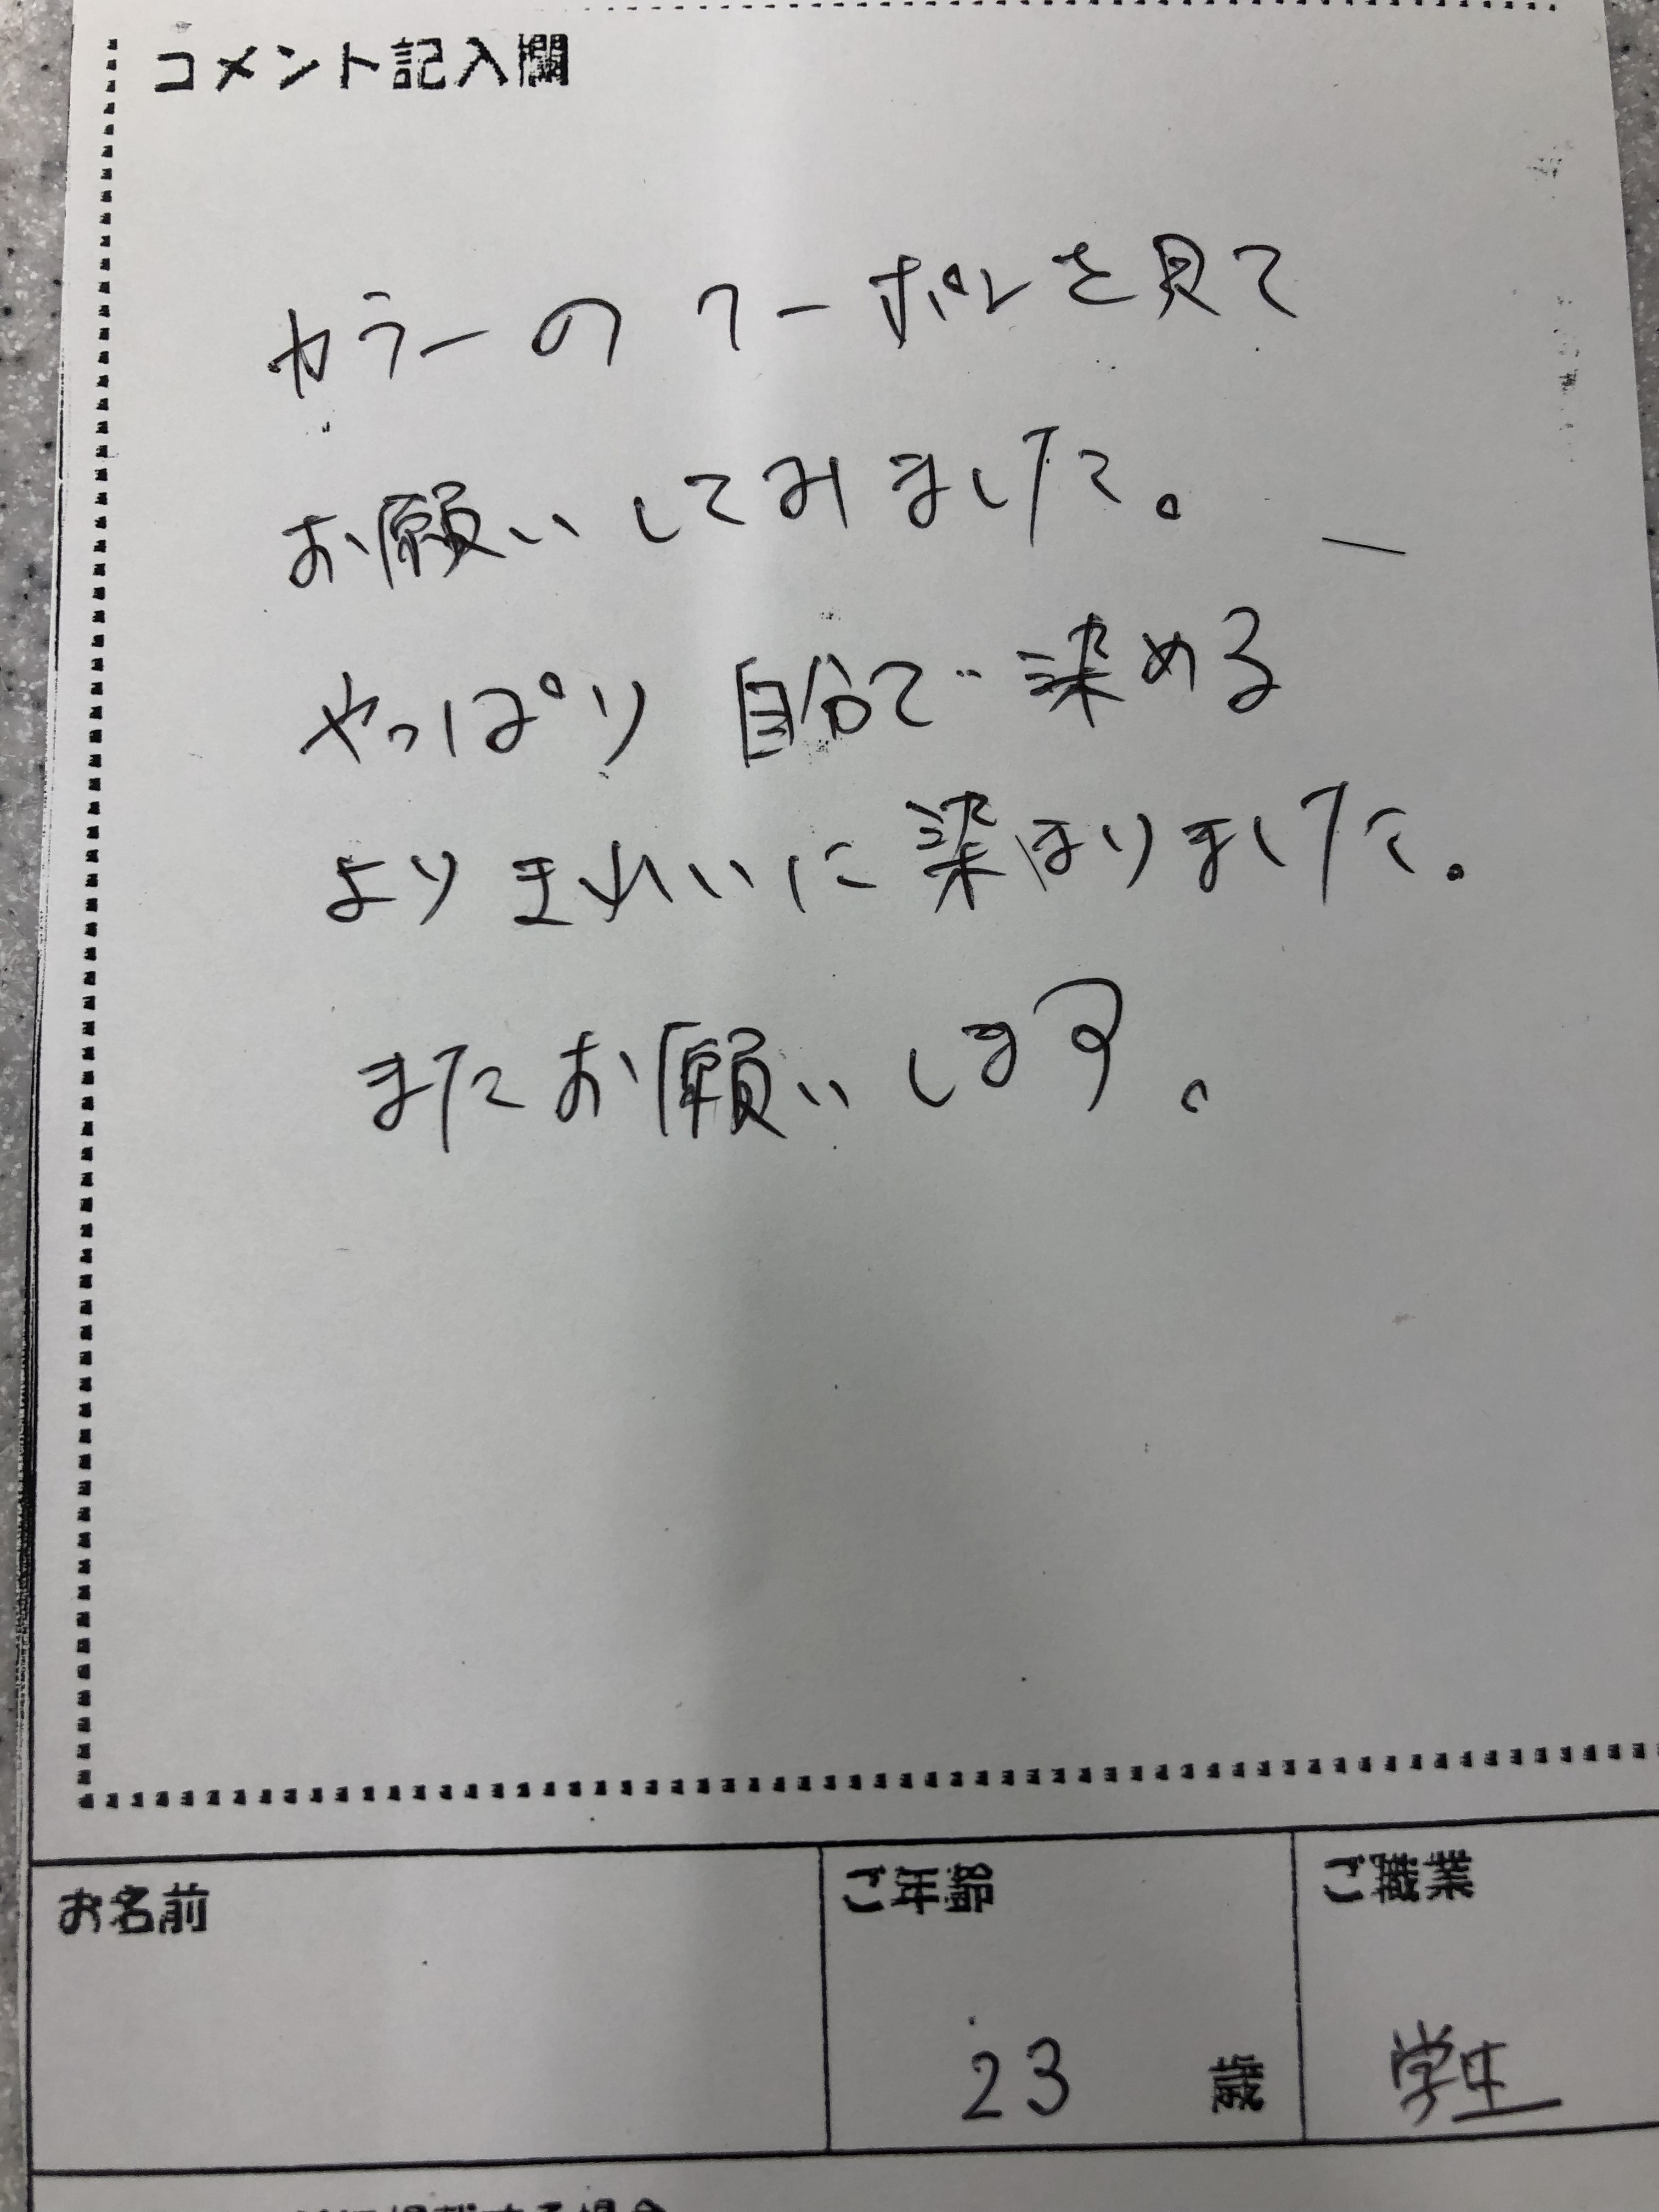 コメント記入欄
カラーのクーポンを見て
お願いしてみました。
やっぱり自分で染める
よりきれいに染まりました。
またお願いします。
お名前
ご年齢
ご職業
23 歳
学生